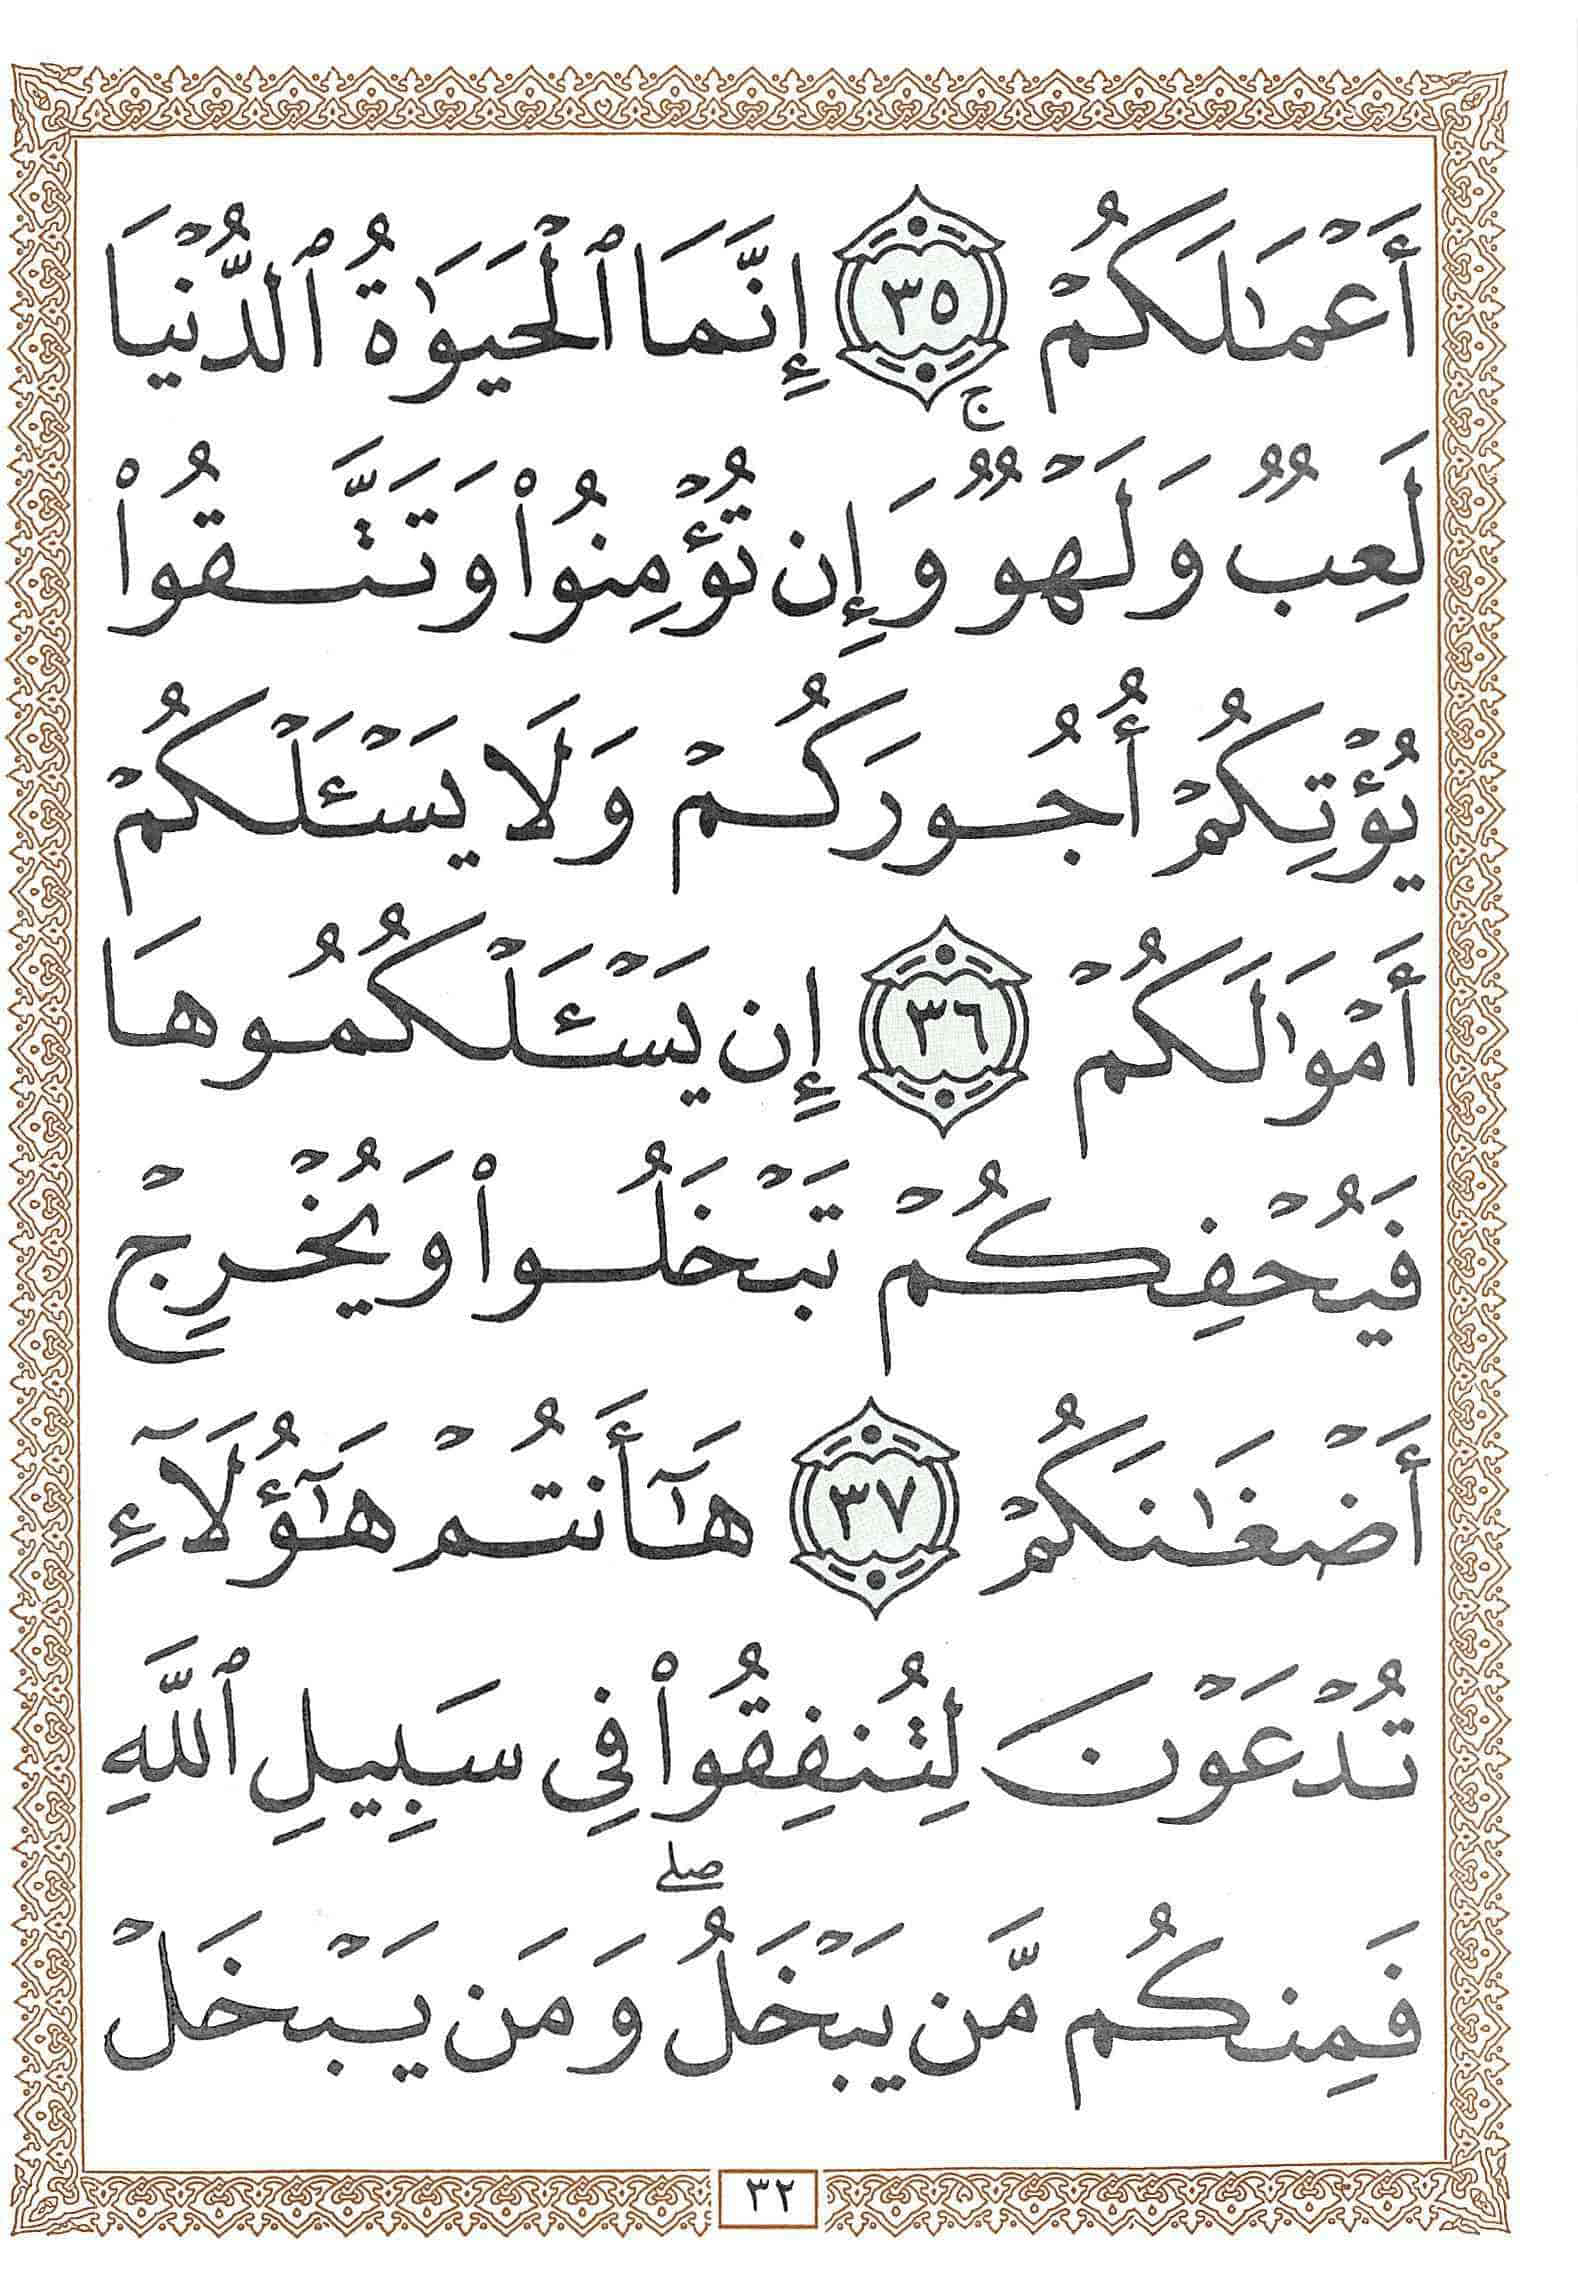 أَعْمَٰلَكُمْ ٣٥ إِنَّمَا ٱلْحَيَوٰةُ ٱلدُّنْيَا
لَعِبٌ وَلَهْوٌ ۚ وَإِن تُؤْمِنُوا۟ وَتَتَّقُوا۟
يُؤْتِكُمْ أُجُورَكُمْ وَلَا يَسْـَٔلْكُمْ
أَمْوَٰلَكُمْ ٣٦ إِن يَسْـَٔلْكُمُوهَا
فَيُحْفِكُمْ تَبْخَلُوا۟ وَيُخْرِجْ
أَضْغَـٰنَكُمْ ٣٧ هَـٰٓأَنتُمْ هَـٰٓؤُلَآءِ
تُدْعَوْنَ لِتُنفِقُوا۟ فِى سَبِيلِ ٱللَّهِ
فَمِنكُم مَّن يَبْخَلُ ۖ وَمَن يَبْخَلْ
٣٢